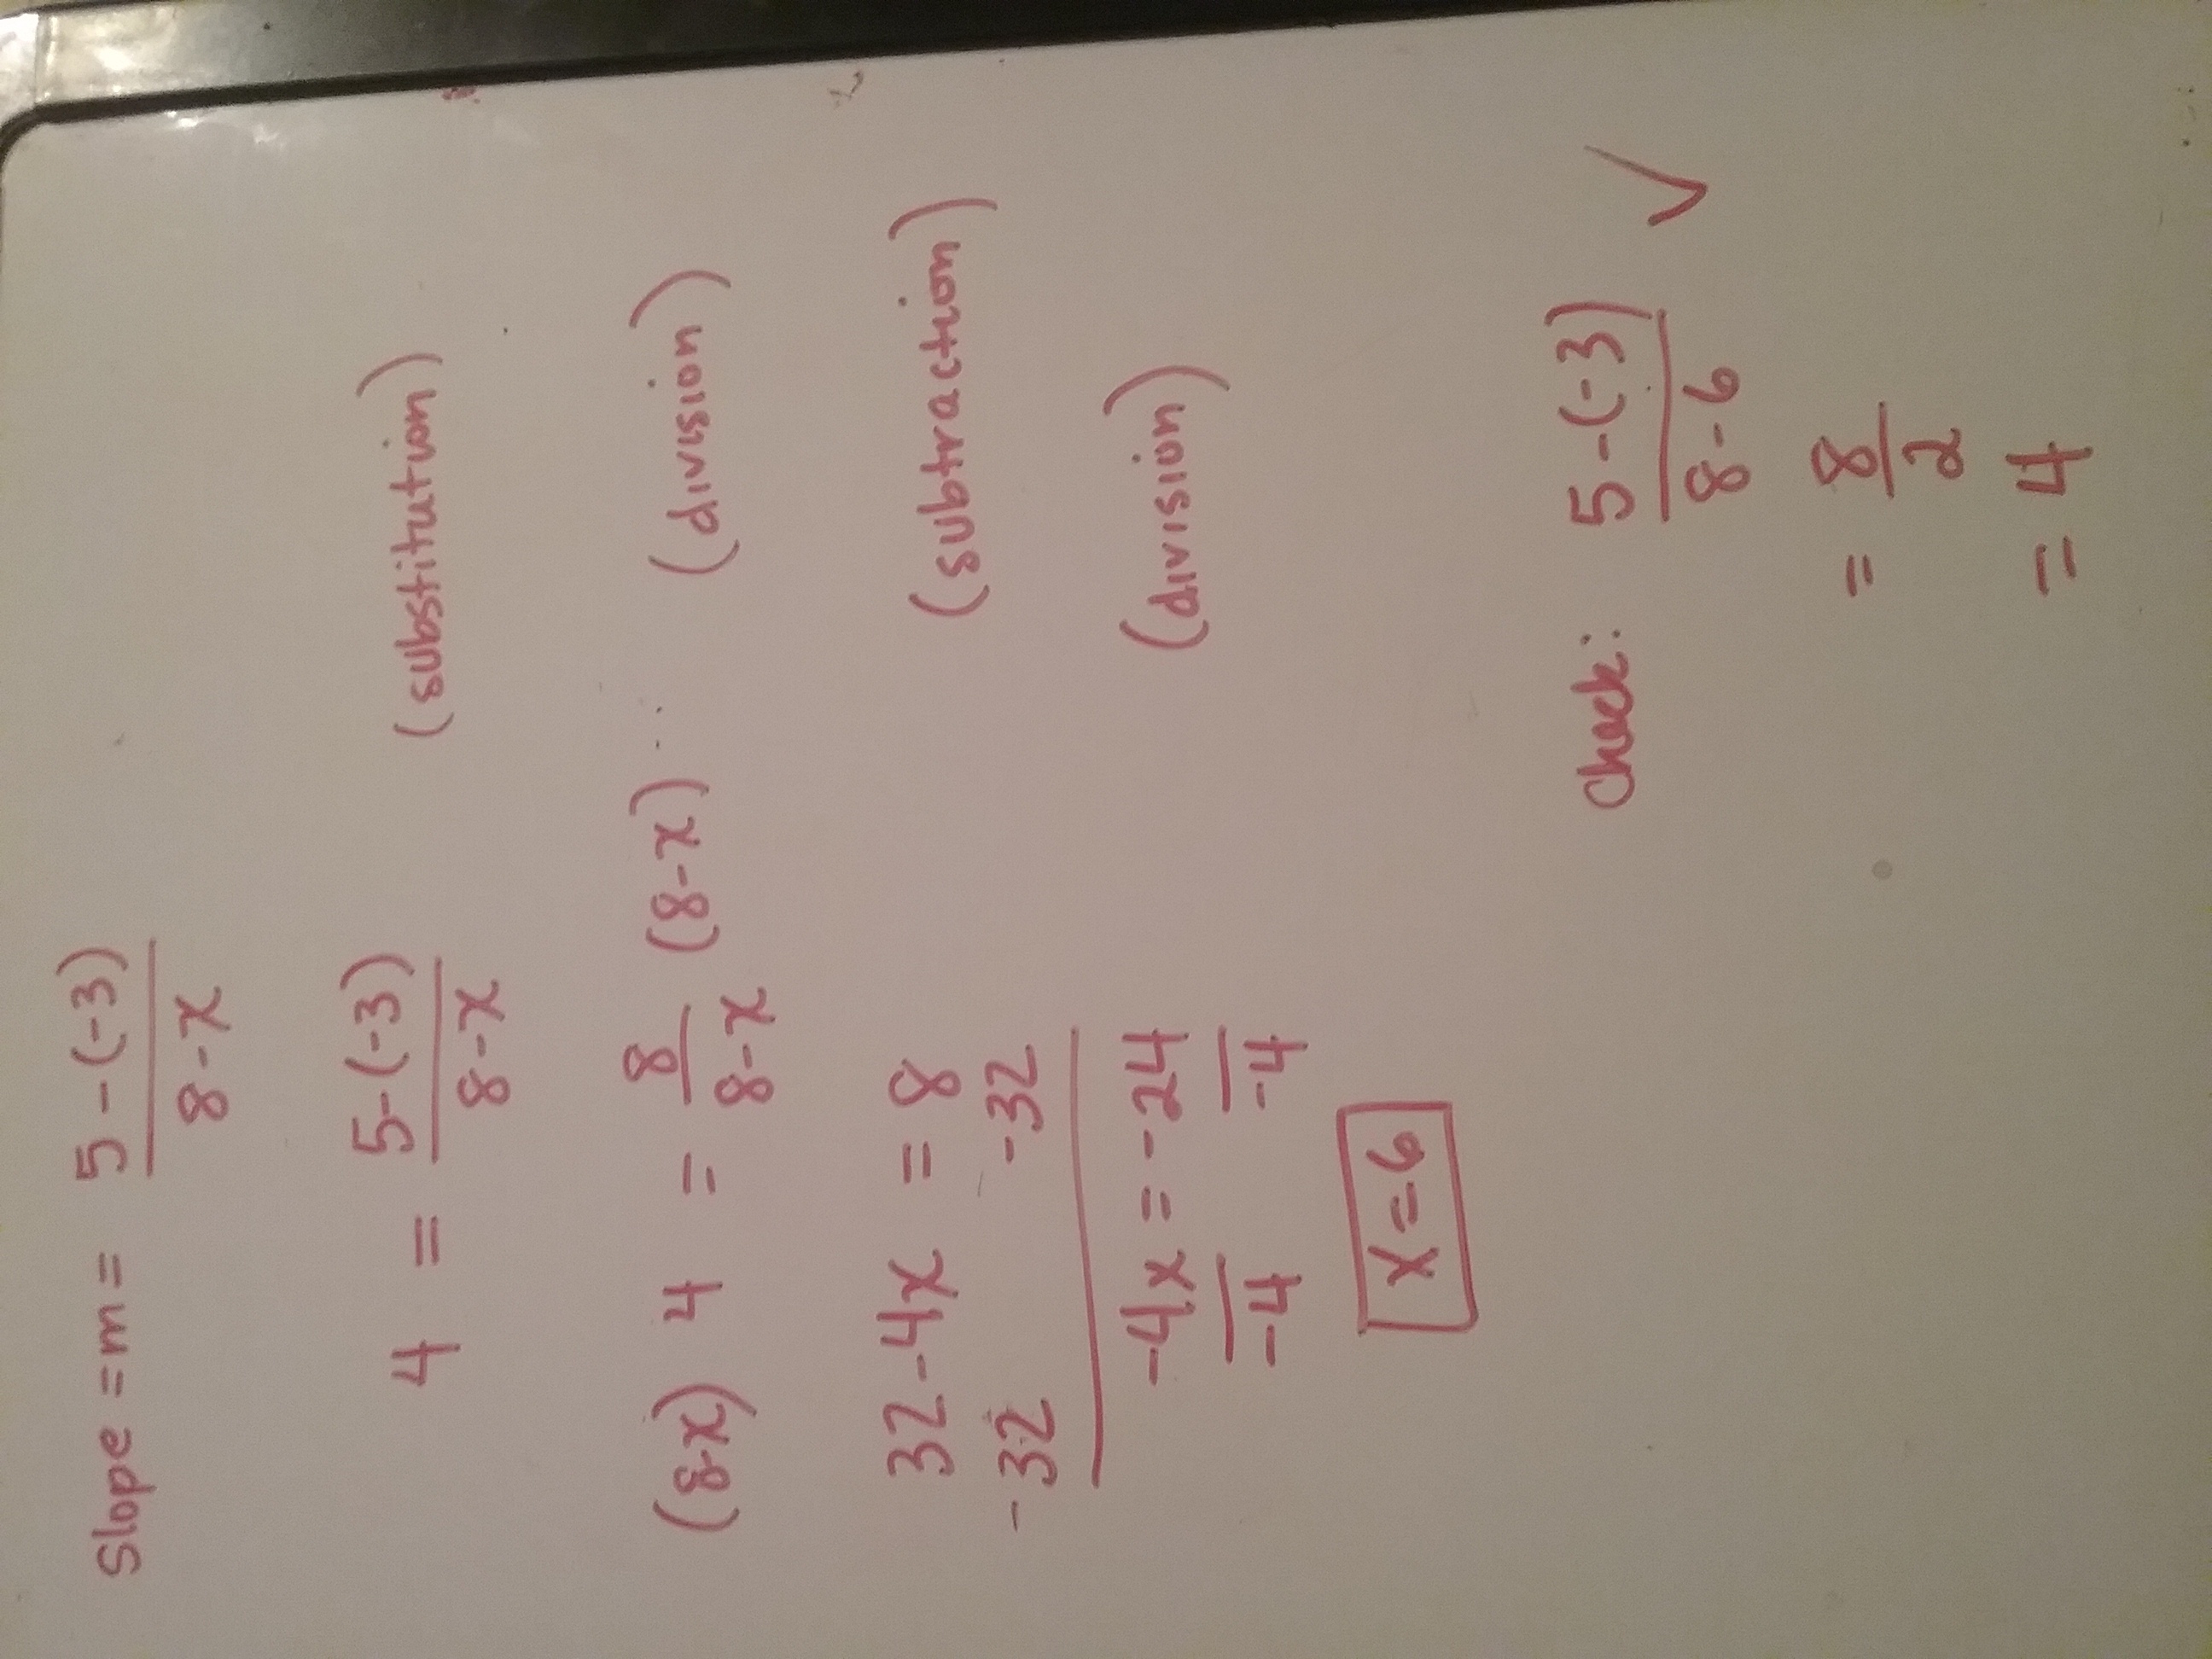 Slope = m = 5 - (-3) / 8 - x
4 = 5 - (-3) / 8 - x (substitution)
(8-x) 4 = 8 / 8-x (8-x) (division)
32 - 4x = 8 (subtraction)
-32 -32
-4x = -24 (division)
-4 -4
x = 6
Check: 5 - (-3) / 8 - 6 √
= 8 / 2
= 4